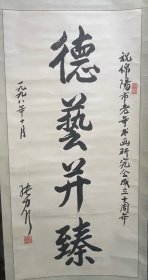 祝绵阳市老年书画研究会成立十周年
德藝并臻
一九九八年十月